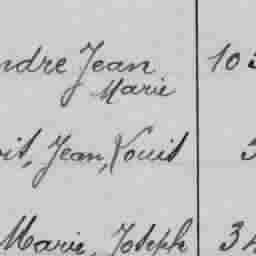 ndre Jean 10
Marie
oit, Jean, Louis 3
Marie, Joseph 34